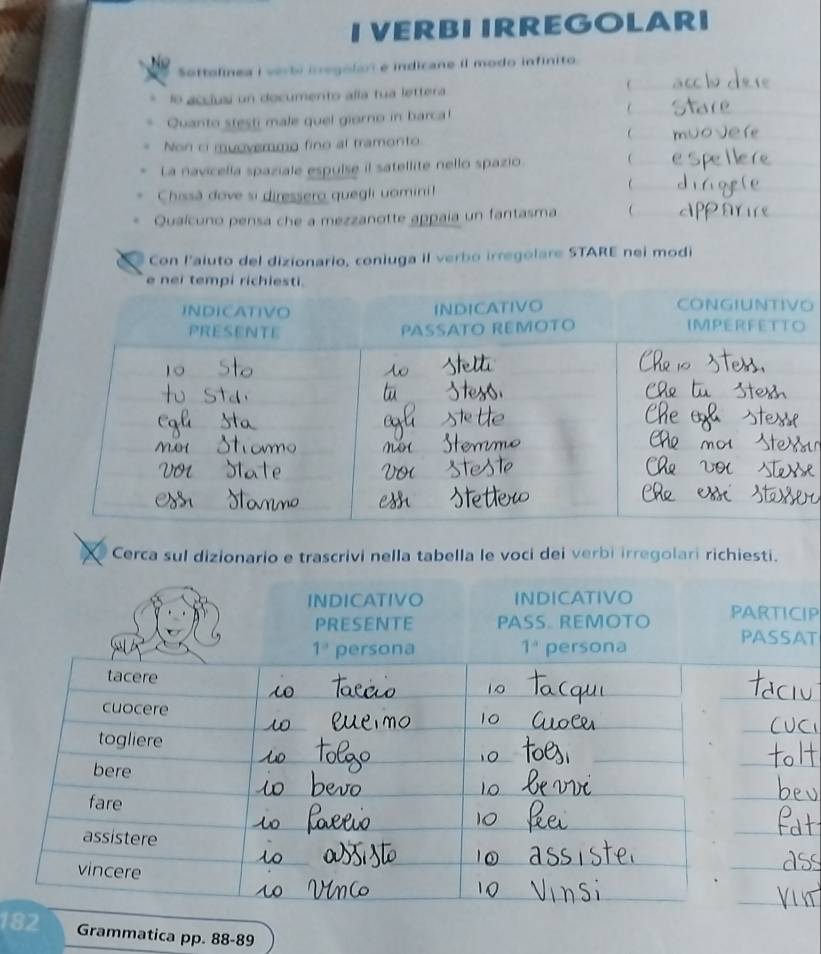 I VERBI IRREGOLARI
No Sottolinea i verbi irregolari e indicane il modo infinito.
• Io acclusi un documento alla tua lettera. (
• Quanto stesti male quel giorno in barca! ( stare
• Non ci muovemmo fino al tramonto. ( muovere
• La navicella spaziale espulse il satellite nello spazio. ( espellere
• Chissà dove si diressero quegli uomini! ( dirigere
• Qualcuno pensa che a mezzanotte appaia un fantasma. ( apparire
Con l'aiuto del dizionario, coniuga il verbo irregolare STARE nei modi
e nei tempi richiesti.
INDICATIVO PRESENTE INDICATIVO PASSATO REMOTO CONGIUNTIVO IMPERFETTO
io sto io stetti che io stessi
tu stai tu stessi che tu stessi
egli sta egli stette che egli stesse
noi stiamo noi stemmo che noi
voi state voi steste che voi steste
essi stanno essi stettero che essi
Cerca sul dizionario e trascrivi nella tabella le voci dei verbi irregolari richiesti.
INDICATIVO PRESENTE 1ª persona INDICATIVO PASS. REMOTO 1ª persona PARTICIP PASSAT
tacere io taccio io tacqui taciu
cuocere io io cuocei cuci
togliere io tolgo io tolt
bere io bevo io bevvi bev
fare io faccio io feci fat
assistere io assisto io assistei ass
vincere io vinco io vinsi vint
182 Grammatica pp. 88-89